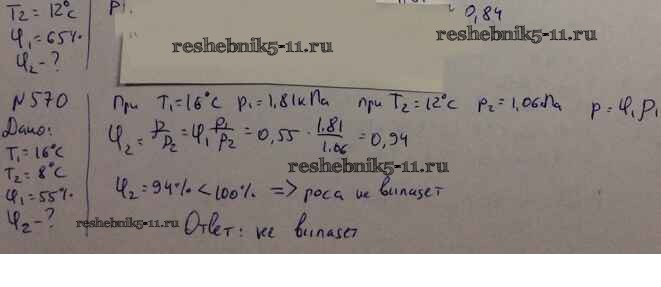 T₂ = 12°C
φ₁ = 65%
φ₂ - ?
= 0,84
reshebnik5-11.ru
N570
Дано:
T₁ = 16°C
T₂ = 8°C
φ₁ = 55%
φ₂ - ?
При T₁ = 16°C p₁ = 1,81кПа при T₂ = 12°C p₂ = 1,06кПа p = φ₁p₁
φ₂ = p/p₂ = φ₁ p₁/p₂ = 0,55 · 1.81/1.06 = 0,94
reshebnik5-11.ru
φ₂ = 94% < 100% => роса не выпадет
reshebnik5-11.ru
Ответ: не выпадет